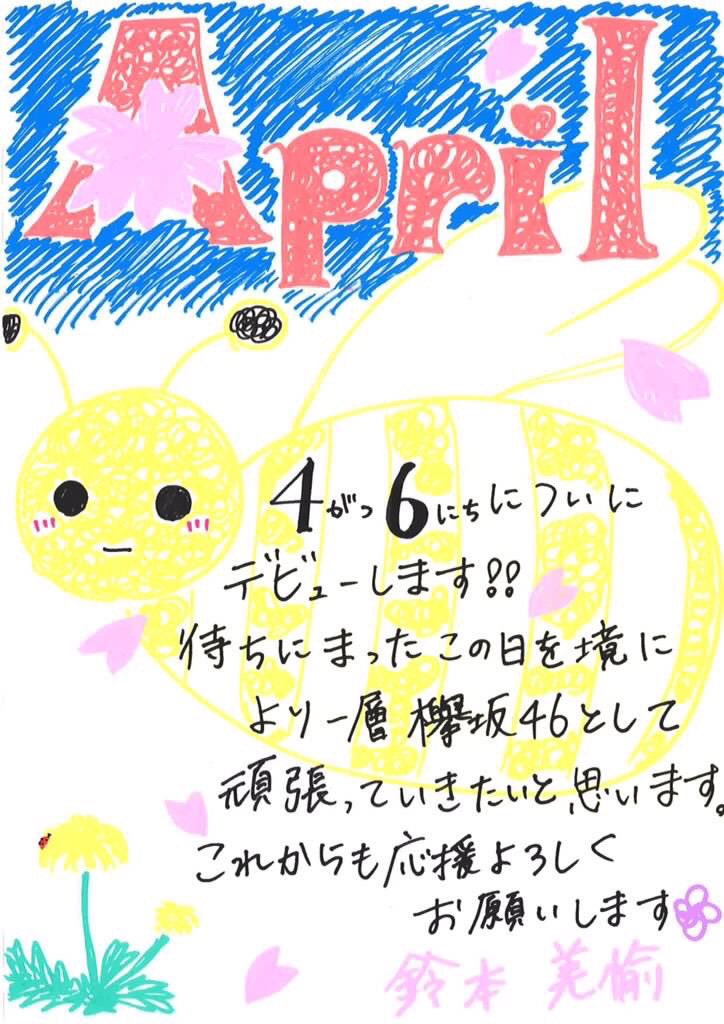 April
4がつ6にちについに
デビューします!!
待ちにまったこの日を境に
より一層欅坂46として
頑張っていきたいと思います。
これからも応援よろしく
お願いします
鈴本美愉